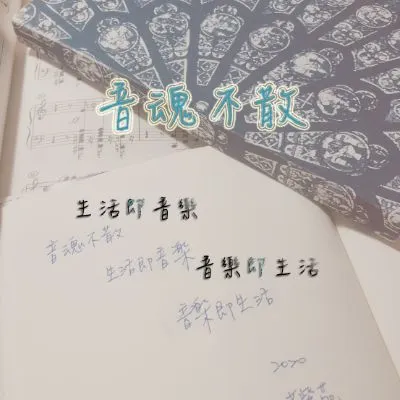 音魂不散
生活即音樂
音魂不散
生活即音樂
音樂即生活
音樂即生活
2020